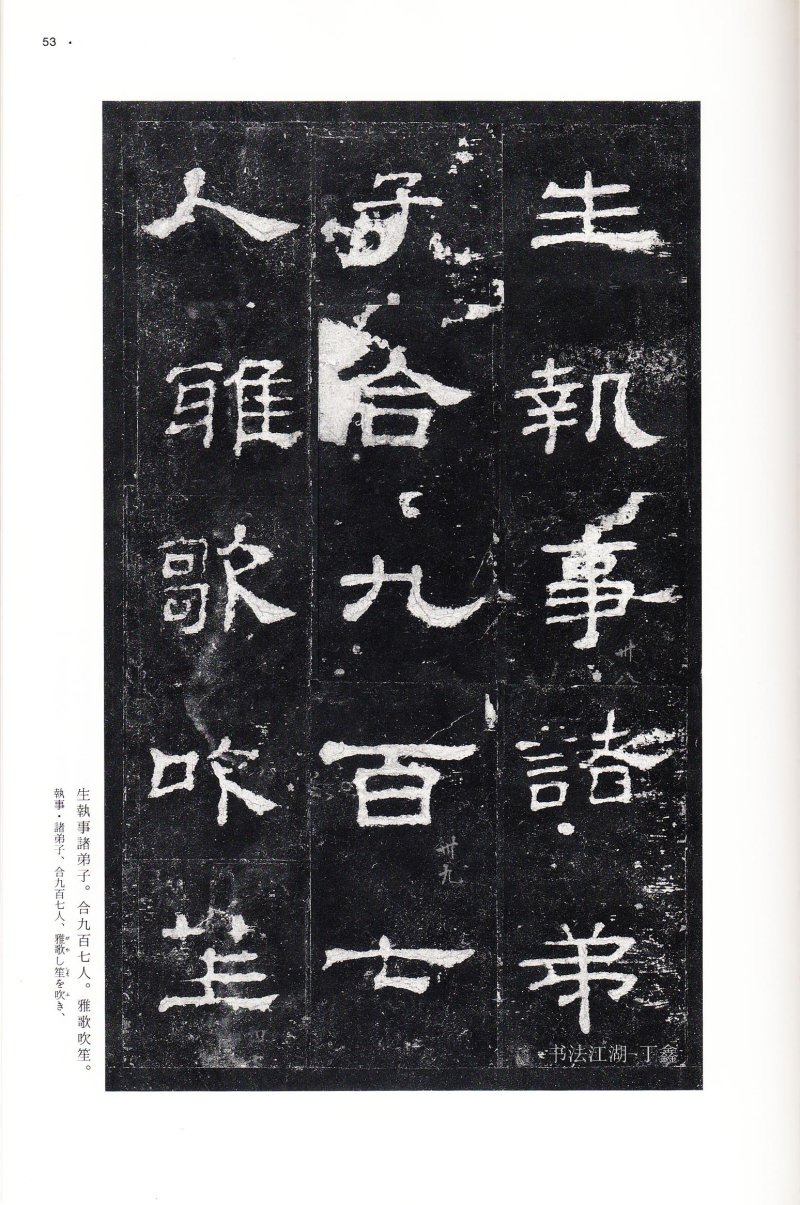 53 ·
生執事諸弟
子合九百七
人雅歌吹笙
卅八
卅九
书法江湖-丁鑫
生執事諸弟子。合九百七人。雅歌吹笙。
執事・諸弟子、合九百七人、雅歌し笙を吹き、